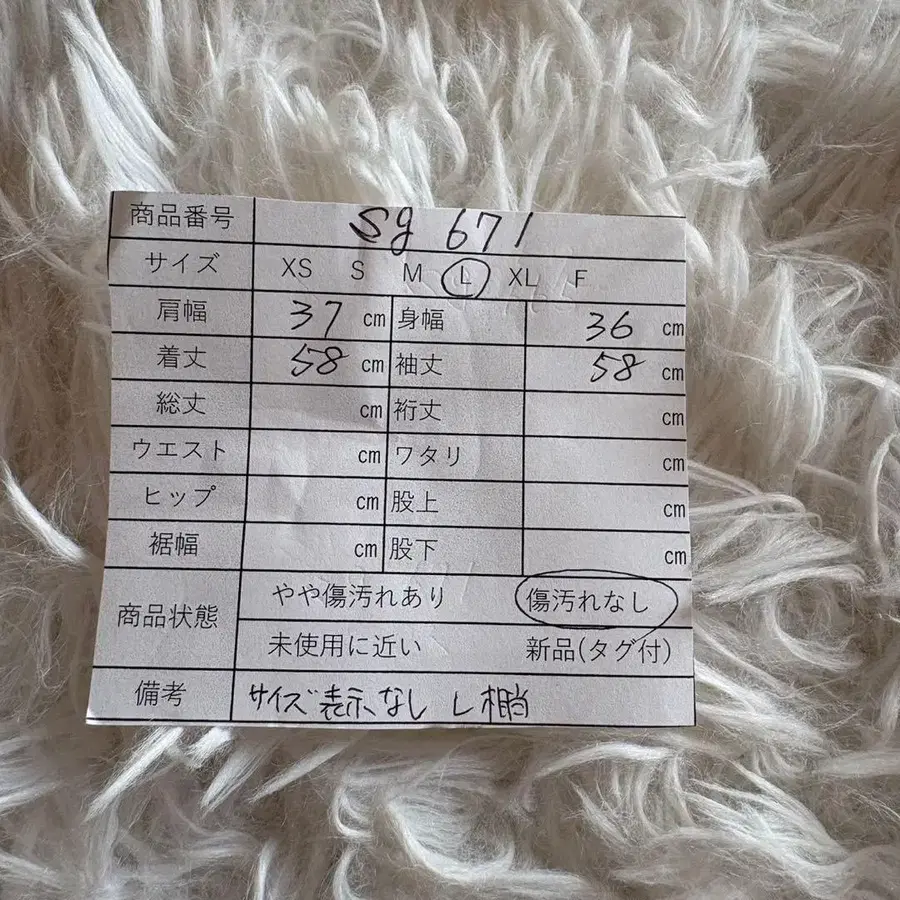 商品番号 Sg 671
サイズ XS S M L XL F
肩幅 37 cm 身幅 36 cm
着丈 58 cm 袖丈 58 cm
総丈 cm 裄丈 cm
ウエスト cm ワタリ cm
ヒップ cm 股上 cm
裾幅 cm 股下 cm
商品状態 やや傷汚れあり 傷汚れなし
未使用に近い 新品(タグ付)
備考 サイズ表示なし L相当